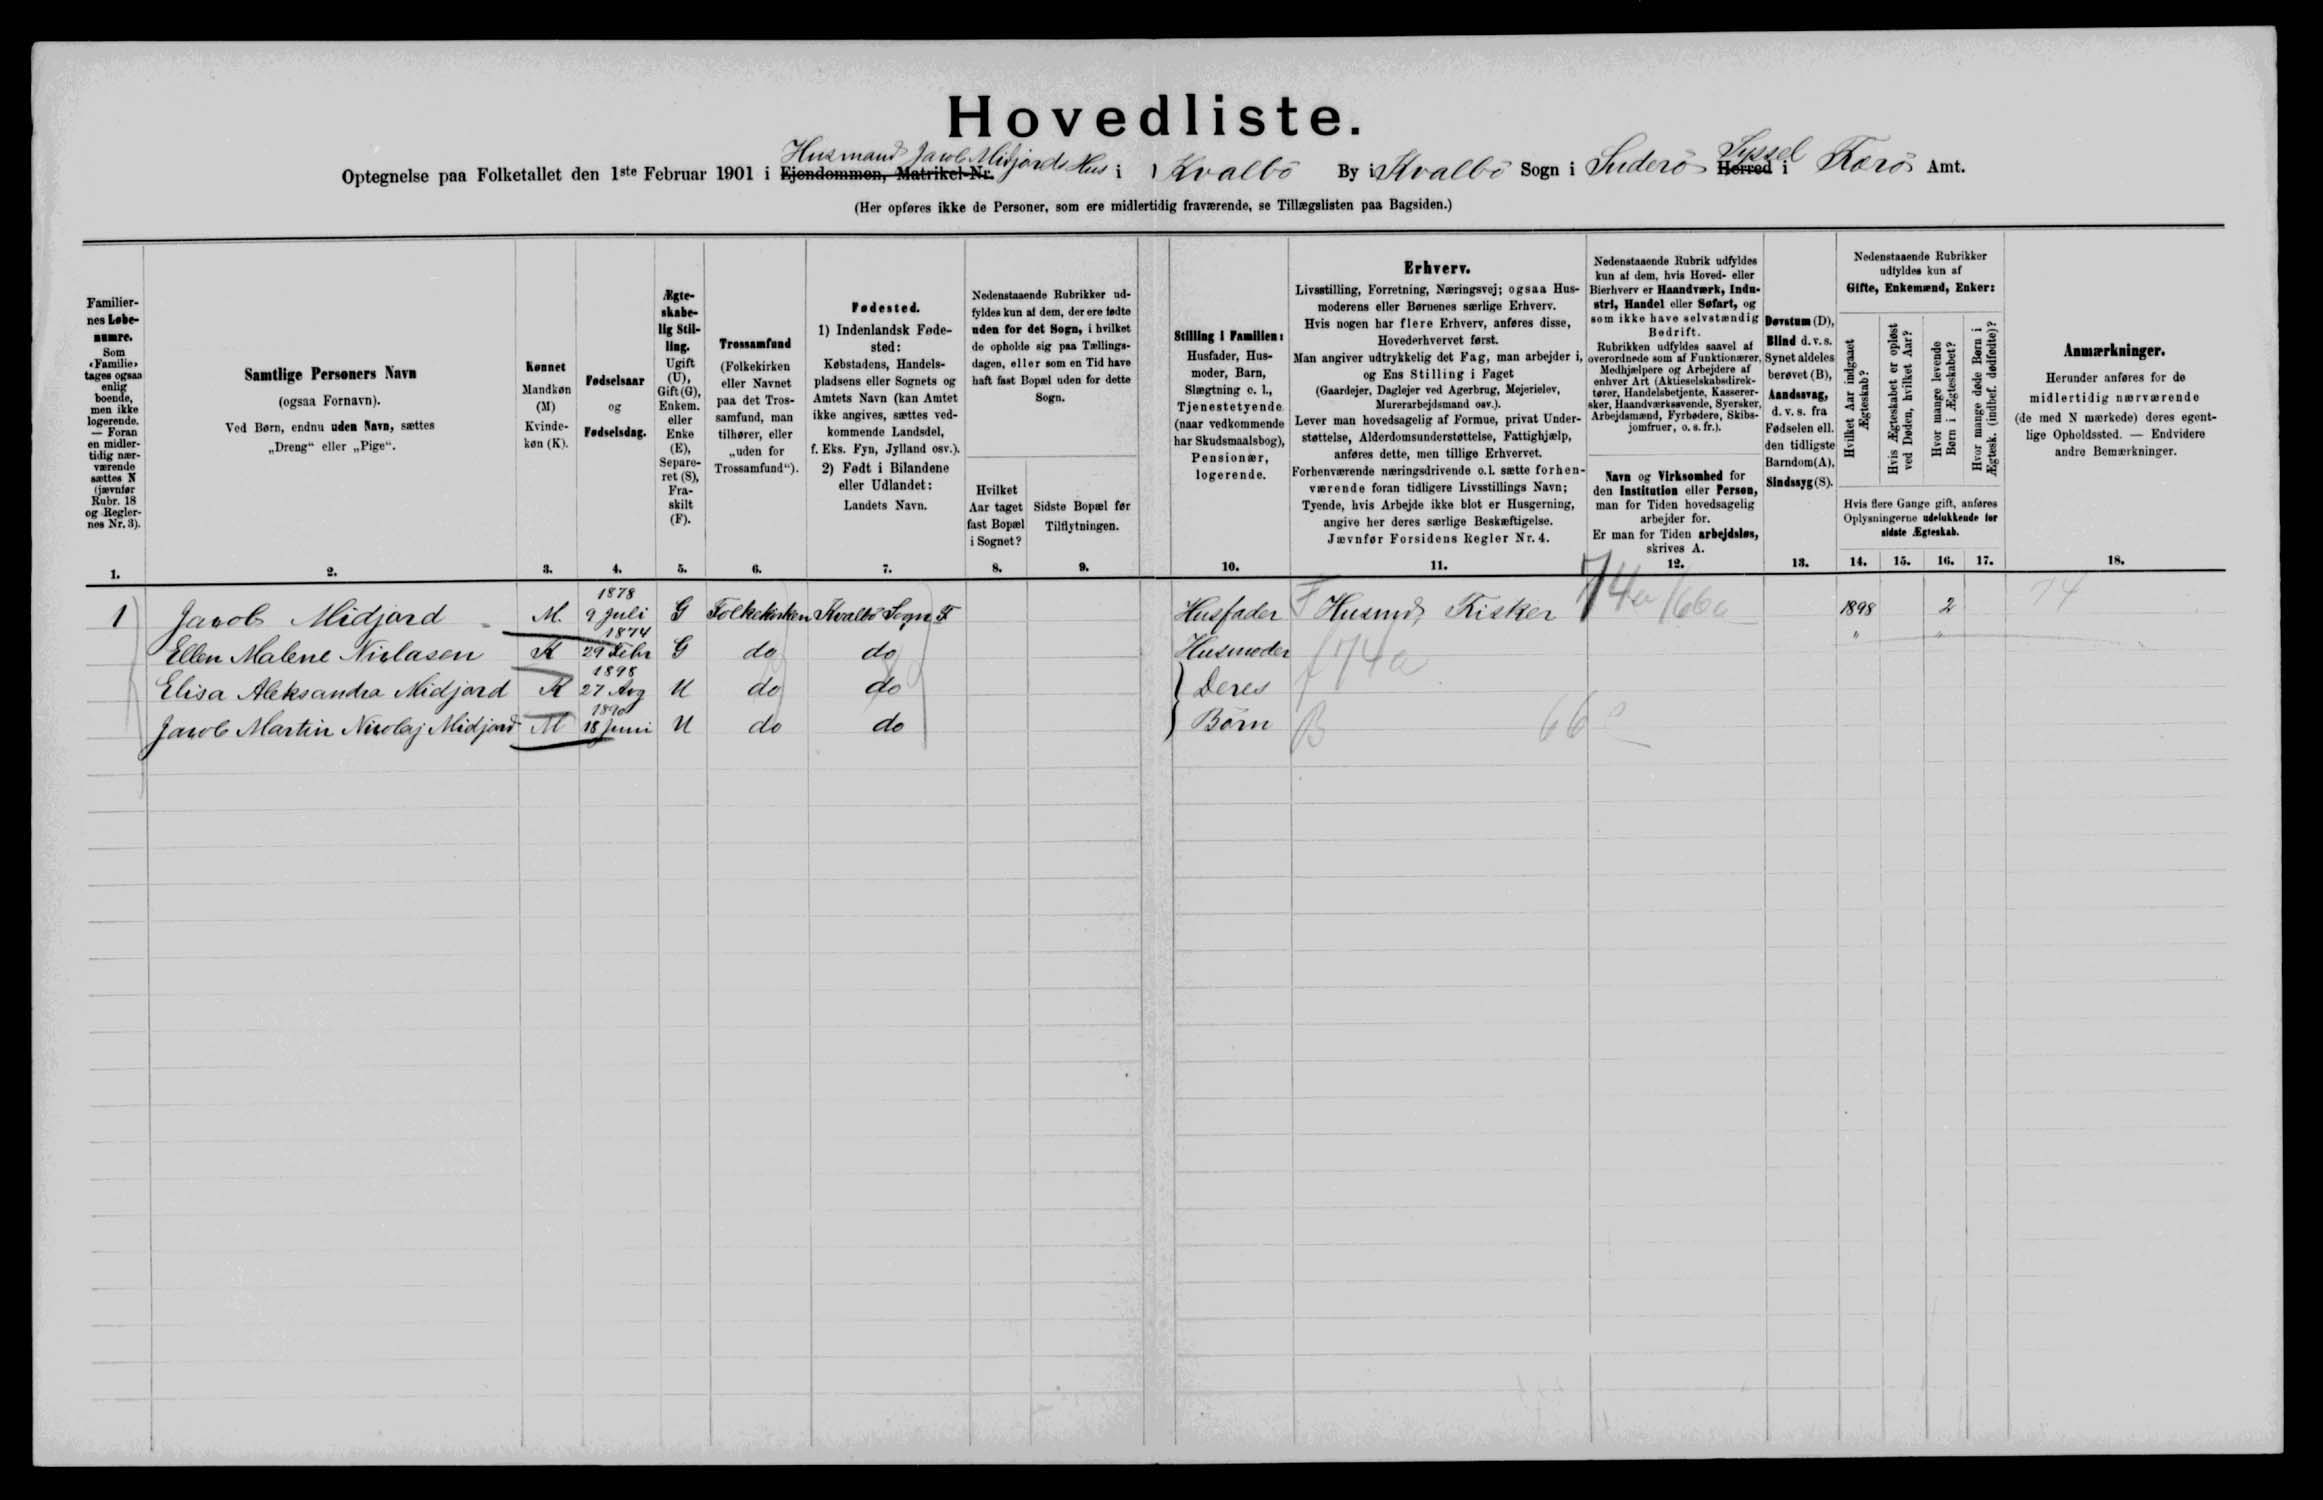 Hovedliste.
Husmand Jacob Midjords Hus Syssel
Optegnelse paa Folketallet den 1ste Februar 1901 i Ejendommen, Matrikel-Nr. i Kvalbö By i Kvalbö Sogn i Suderö Herred i Færö Amt.
(Her opføres ikke de Personer, som ere midlertidig fraværende, se Tillægslisten paa Bagsiden.)
Familiernes Løbenumre.
Som «Familie» tages ogsaa enlig boende, men ikke logerende. — Foran en midlertidig nærværende sættes N (jævnfør Rubr. 18 og Reglernes Nr. 3).
Samtlige Personers Navn
(ogsaa Fornavn).
Ved Børn, endnu uden Navn, sættes
„Dreng“ eller „Pige“.
Kønnet
Mandkøn (M)
Kvindekøn (K).
Fødselsaar
og
Fødselsdag.
Ægteskabelig Stilling.
Ugift (U), Gift (G), Enkem. eller Enke (E), Separeret (S), Fraskilt (F).
Trossamfund
(Folkekirken eller Navnet paa det Trossamfund, man tilhører, eller „uden for Trossamfund“).
Fødested.
1) Indenlandsk Fødested:
Købstadens, Handelspladsens eller Sognets og Amtets Navn (kan Amtet ikke angives, sættes vedkommende Landsdel, f. Eks. Fyn, Jylland osv.).
2) Født i Bilandene eller Udlandet:
Landets Navn.
Nedenstaaende Rubrikker udfyldes kun af dem, der ere fødte uden for det Sogn, i hvilket de opholde sig paa Tællingsdagen, eller som en Tid have haft fast Bopæl uden for dette Sogn.
Hvilket Aar taget fast Bopæl i Sognet?
Sidste Bopæl før Tilflytningen.
Stilling i Familien:
Husfader, Husmoder, Barn, Slægtning o. l., Tjenestetyende (naar vedkommende har Skudsmaalsbog), Pensionær, logerende.
Erhverv.
Livsstilling, Forretning, Næringsvej; ogsaa Husmoderens eller Børnenes særlige Erhverv.
Hvis nogen har flere Erhverv, anføres disse, Hovederhvervet først.
Man angiver udtrykkelig det Fag, man arbejder i, og Ens Stilling i Faget
(Gaardejer, Daglejer ved Agerbrug, Mejerielev, Murerarbejdsmand osv.).
Lever man hovedsagelig af Formue, privat Understøttelse, Alderdomsunderstøttelse, Fattighjælp, anføres dette, men tillige Erhvervet.
Forhenværende næringsdrivende o. l. sætte forhenværende foran tidligere Livsstillings Navn;
Tyende, hvis Arbejde ikke blot er Husgerning, angive her deres særlige Beskæftigelse.
Jævnfør Forsidens Regler Nr. 4.
Nedenstaaende Rubrik udfyldes kun af dem, hvis Hoved- eller Bierhverv er Haandværk, Industri, Handel eller Søfart, og som ikke have selvstændig Bedrift.
Rubrikken udfyldes saavel af overordnede som af Funktionærer, Medhjælpere og Arbejdere af enhver Art (Aktieselskabsdirektører, Handelsbetjente, Kasserersker, Haandværkssvende, Syersker, Arbejdsmænd, Fyrbødere, Skibsjomfruer, o. s. fr.).
Navn og Virksomhed for den Institution eller Person, man for Tiden hovedsagelig arbejder for.
Er man for Tiden arbejdsløs, skrives A.
Døvstum (D), Blind d. v. s. Synet aldeles berøvet (B), Aandssvag, d. v. s. fra Fødselen ell. den tidligste Barndom (A), Sindssyg (S).
Nedenstaaende Rubrikker udfyldes kun af Gifte, Enkemænd, Enker:
Hvilket Aar indgaaet Ægteskab?
Hvis Ægteskabet er opløst ved Døden, hvilket Aar?
Hvor mange levende Børn i Ægteskabet?
Hvor mange døde Børn i Ægtesk. (indbef. dødfødte)?
Hvis flere Gange gift, anføres Oplysningerne udelukkende for sidste Ægteskab.
Anmærkninger.
Herunder anføres for de midlertidig nærværende (de med N mærkede) deres egentlige Opholdssted. — Endvidere andre Bemærkninger.
1. 2. 3. 4. 5. 6. 7. 8. 9. 10. 11. 12. 13. 14. 15. 16. 17. 18.
1 Jacob Midjord M. 1878 9 Juli G Folkekirken Kvalbö Sogn F Husfader F Husmd, Fisker 74a/66a 1898 2 74
Ellen Malene Niclasen K 1874 29 Febr G do do Husmoder f 74a " "
Elisa Aleksandra Midjord K 1898 27 Avg U do do } Deres
Jacob Martin Nicolaj Midjord M 1890 18 Juni U do do Börn B 66